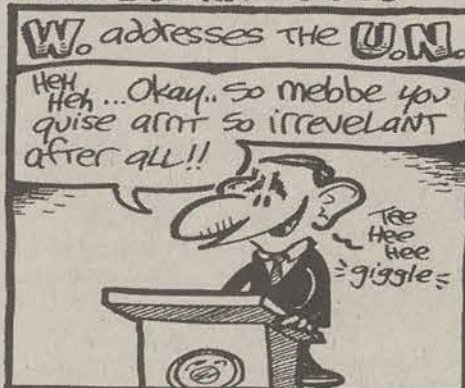 W. addresses THE U.N.
HEH
Heh ...Okay.. So mebbe you
quise arnt so irrevelant
after all!!
Tee
Hee
Hee
giggle